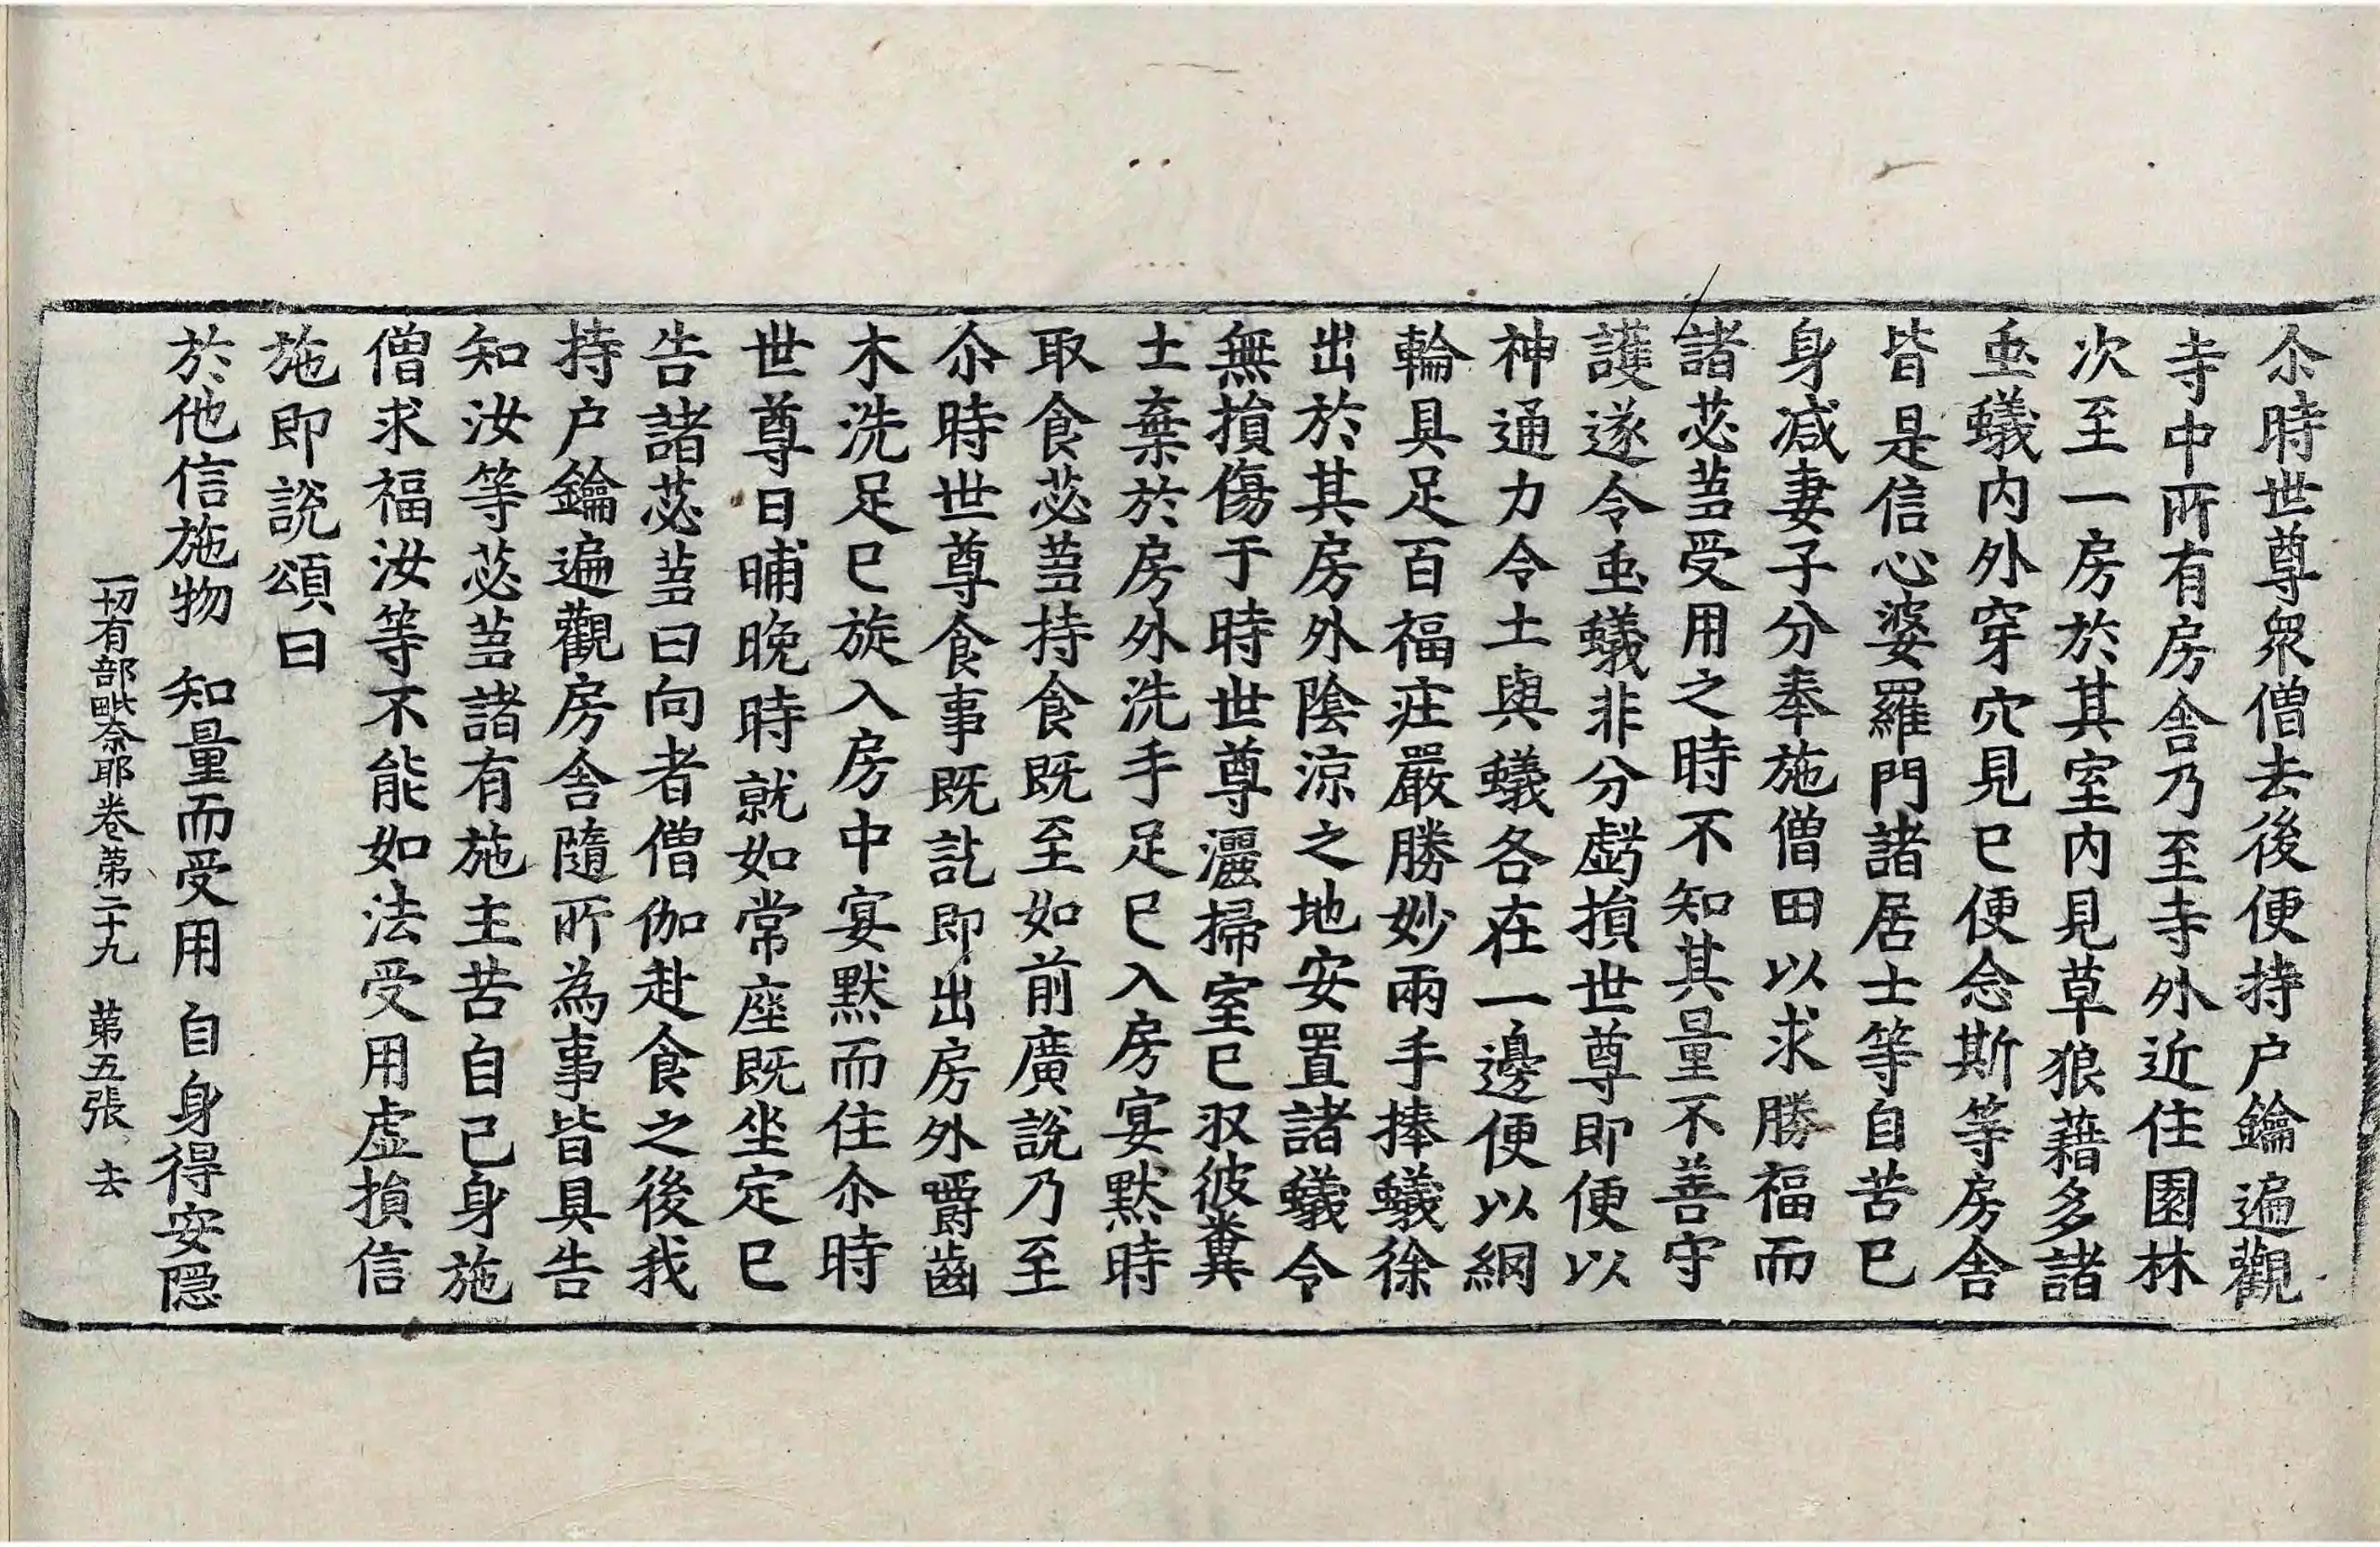 尒時世尊衆僧去後便持户鑰遍觀
寺中所有房舎乃至寺外近住園林
次至一房於其室内見草狼藉多諸
䖝蟻内外穿穴見已便念斯等房舎
皆是信心婆羅門諸居士等自苦已
身减妻子分奉施僧田以求勝福而
諸苾蒭受用之時不知其量不善守
護遂令䖝蟻非分虧損世尊即便以
神通力令土與蟻各在一邊便以網
輪具足百福庄嚴勝妙兩手捧蟻徐
出於其房外陰凉之地安置諸蟻令
無損傷于時世尊灑掃室已収彼糞
土棄於房外洗手足已入房宴默時
取食苾蒭持食既至如前廣說乃至
尒時世尊食事既訖即出房外嚼齒
木洗足已旋入房中宴默而住尒時
世尊日晡晚時就如常座既坐定已
告諸苾蒭曰向者僧伽赴食之後我
持户鑰遍觀房舎隨所為事皆具告
知汝等苾蒭諸有施主苦自己身施
僧求福汝等不能如法受用虛損信
施即說頌曰
於他信施物 知量而受用 自身得安隱
一切有部毗奈耶卷第二十九 第五張 去